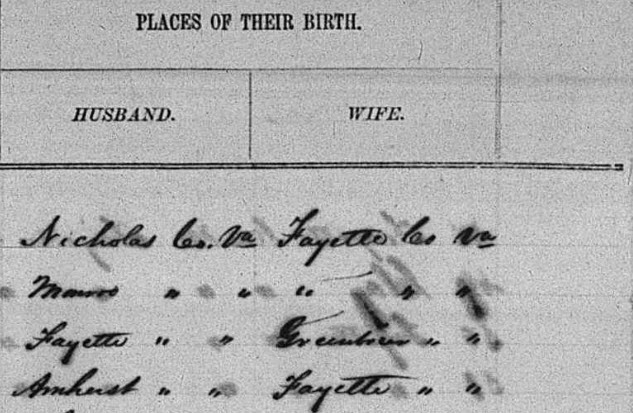 PLACES OF THEIR BIRTH.
HUSBAND. WIFE.
Nicholas Co. Va Fayette Co Va
" " " " "
Fayette " " Greenbrier " "
Amherst " " Fayette " "